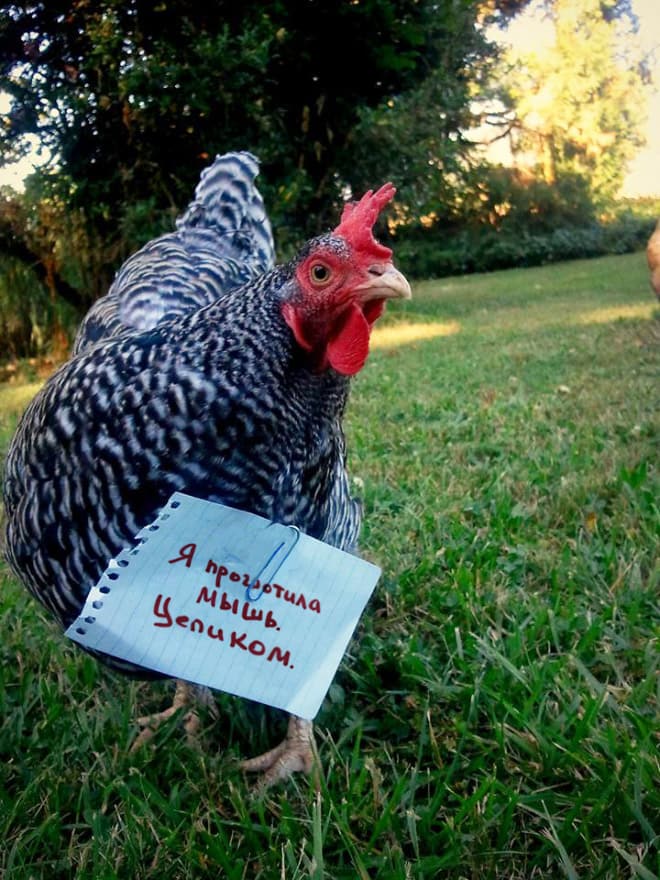 Я проглотила
мышь.
Целиком.